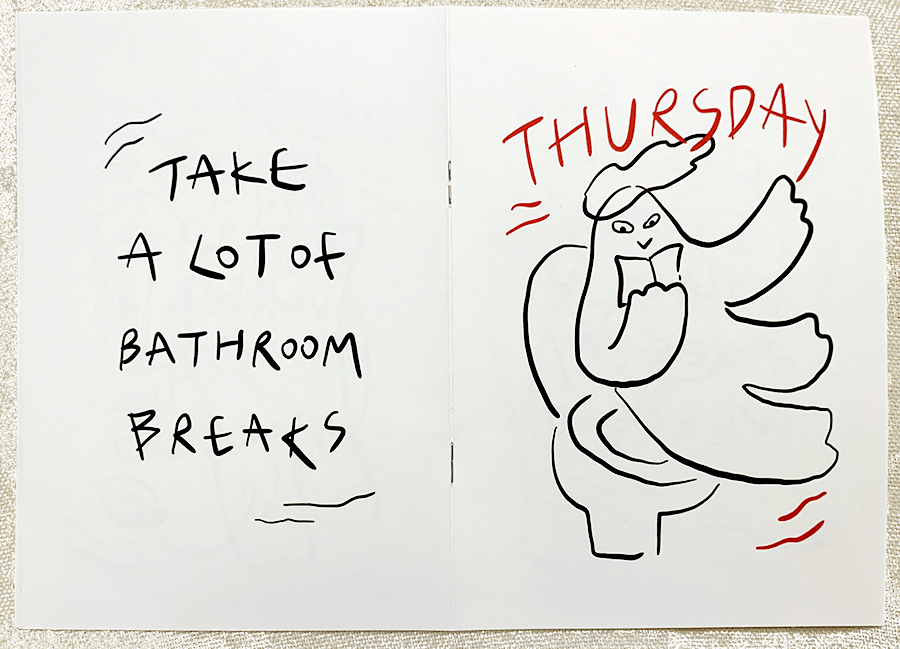 TAKE
A LOT OF
BATHROOM
BREAKS
THURSDAY